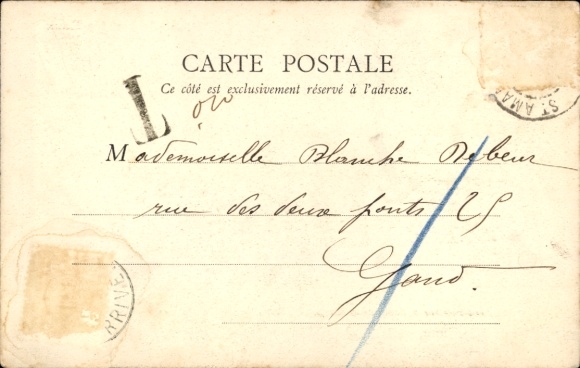 CARTE POSTALE
Ce côté est exclusivement réservé à l'adresse.
T
Mademoiselle Blanche Debeur
rue des deux ponts 25
Gand.
ST. AMA
RRIVE